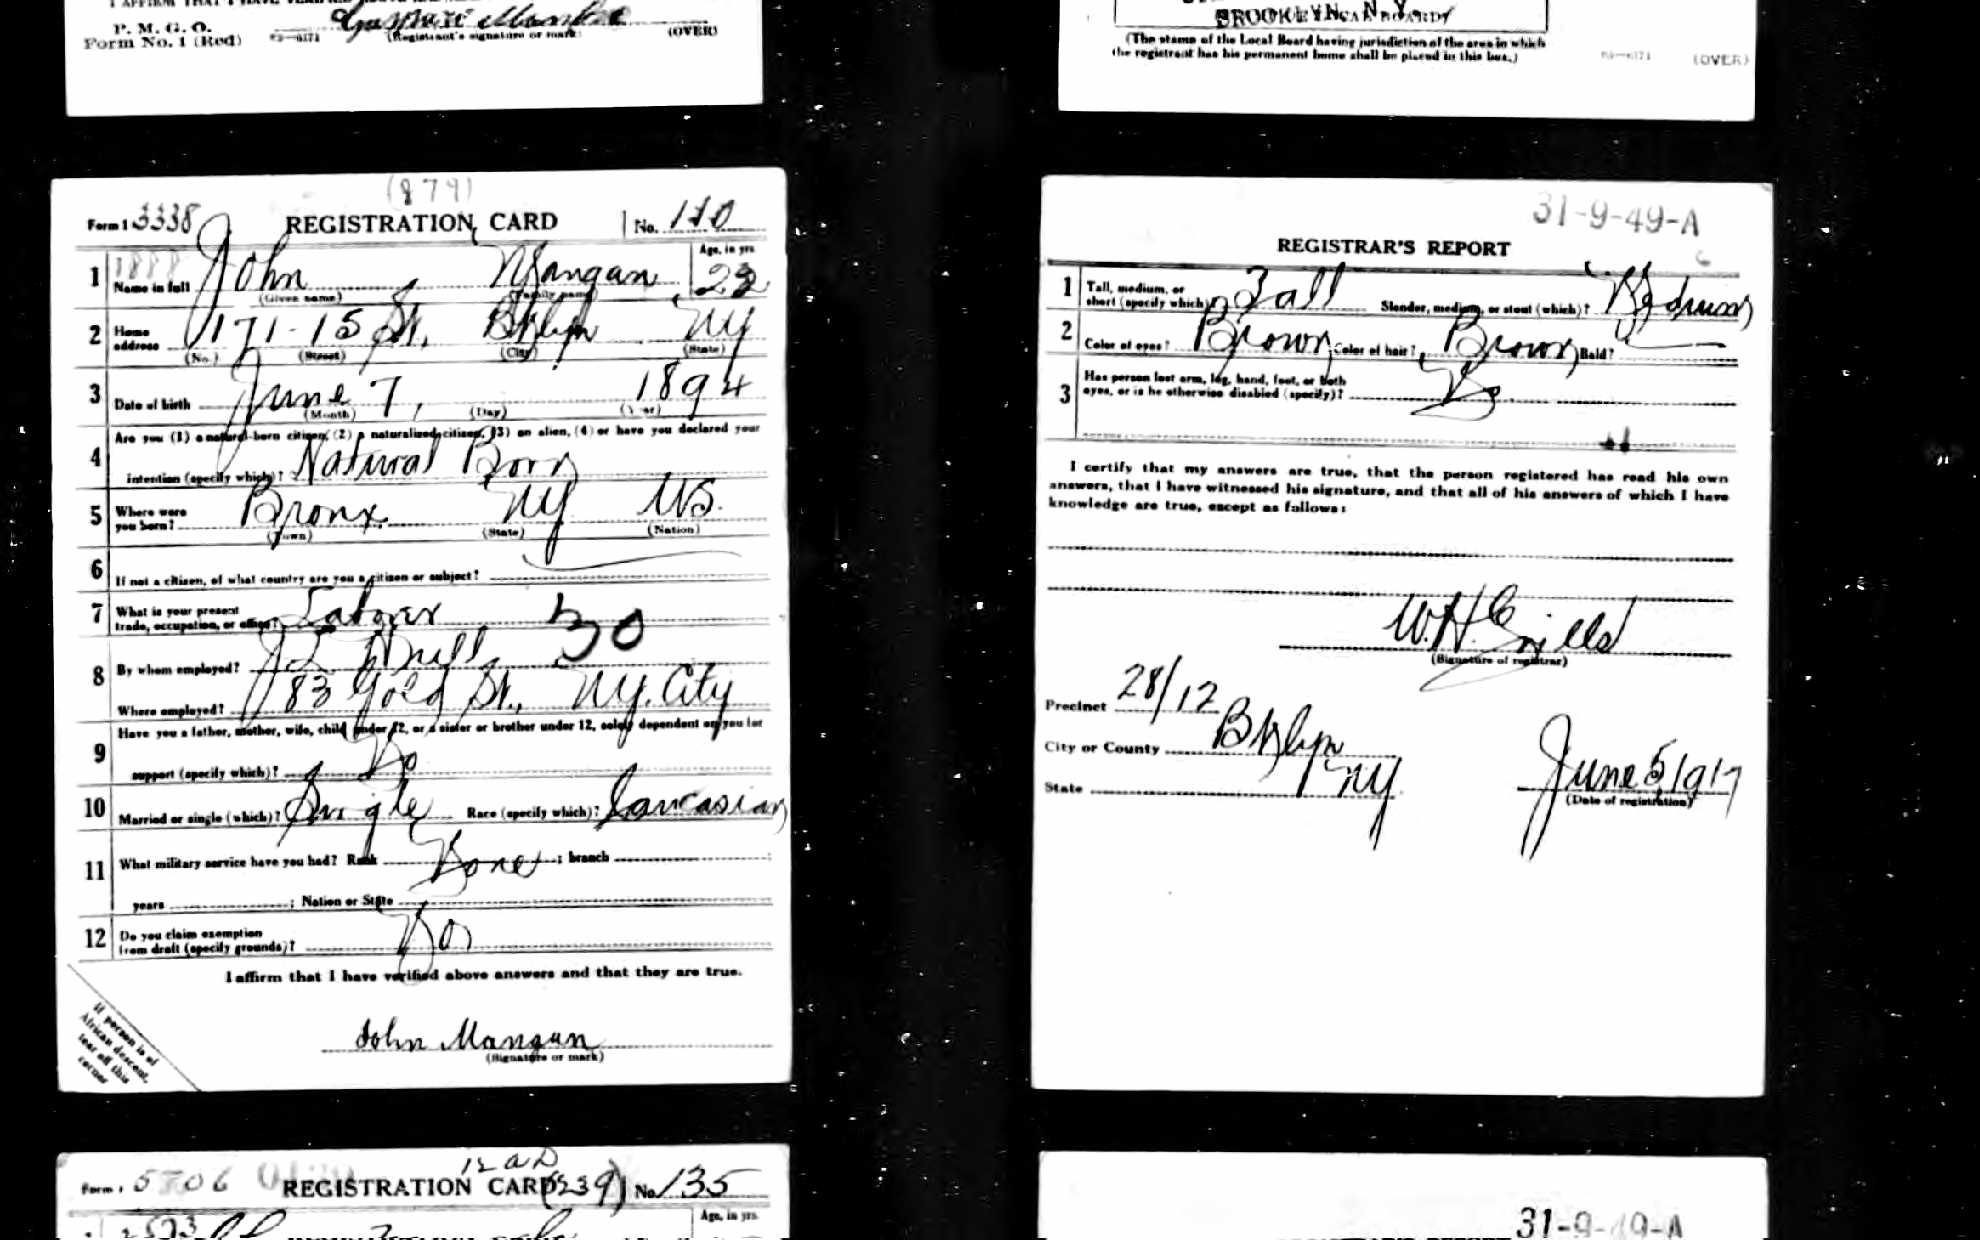 P. M. G. O.
Form No. 1 (Red)
(Registrant's signature or mark)
(OVER)
BROOKLYN, N. Y.
(The stamp of the Local Board having jurisdiction of the area in which
the registrant has his permanent home shall be placed in this box.)
(OVER)
(879)
Form 1 3338 REGISTRATION CARD No. 110
1 Name in full John Mangan Age, in yrs.
1888
(Given name) (Family name)
2 Home address 171-15 St. Bklyn NY
(No.) (Street) (City) (State)
3 Date of birth June 7, 1894
(Month) (Day) (Year)
4 Are you (1) a natural-born citizen, (2) a naturalized citizen, (3) an alien, (4) or have you declared your
intention (specify which)? Natural Born
5 Where were you born? Bronx NY US.
(Town) (State) (Nation)
6 If not a citizen, of what country are you a citizen or subject?
7 What is your present trade, occupation, or office? Laborer 30
8 By whom employed?
Where employed? 83 Gold St., NY. City
9 Have you a father, mother, wife, child under 12, or a sister or brother under 12, solely dependent on you for
support (specify which)? No
10 Married or single (which)? Single Race (specify which)? Caucasian
11 What military service have you had? Rank None; branch
years ; Nation or State
12 Do you claim exemption from draft (specify grounds)? No
I affirm that I have verified above answers and that they are true.
John Mangan
(Signature or mark)
If person is of
African descent,
tear off this
corner
31-9-49-A
REGISTRAR'S REPORT
1 Tall, medium, or short (specify which)? Tall Slender, medium, or stout (which)? Medium
2 Color of eyes? Brown Color of hair? Brown Bald?
3 Has person lost arm, leg, hand, foot, or both
eyes, or is he otherwise disabled (specify)? No
I certify that my answers are true, that the person registered has read his own
answers, that I have witnessed his signature, and that all of his answers of which I have
knowledge are true, except as follows:
W.H.
(Signature of registrar)
Precinct 28/12
City or County Bklyn
State NY
June 5, 1917
(Date of registration)
Form 1 5706 REGISTRATION CARD No 135
Age, in yrs.
31-9-49-A